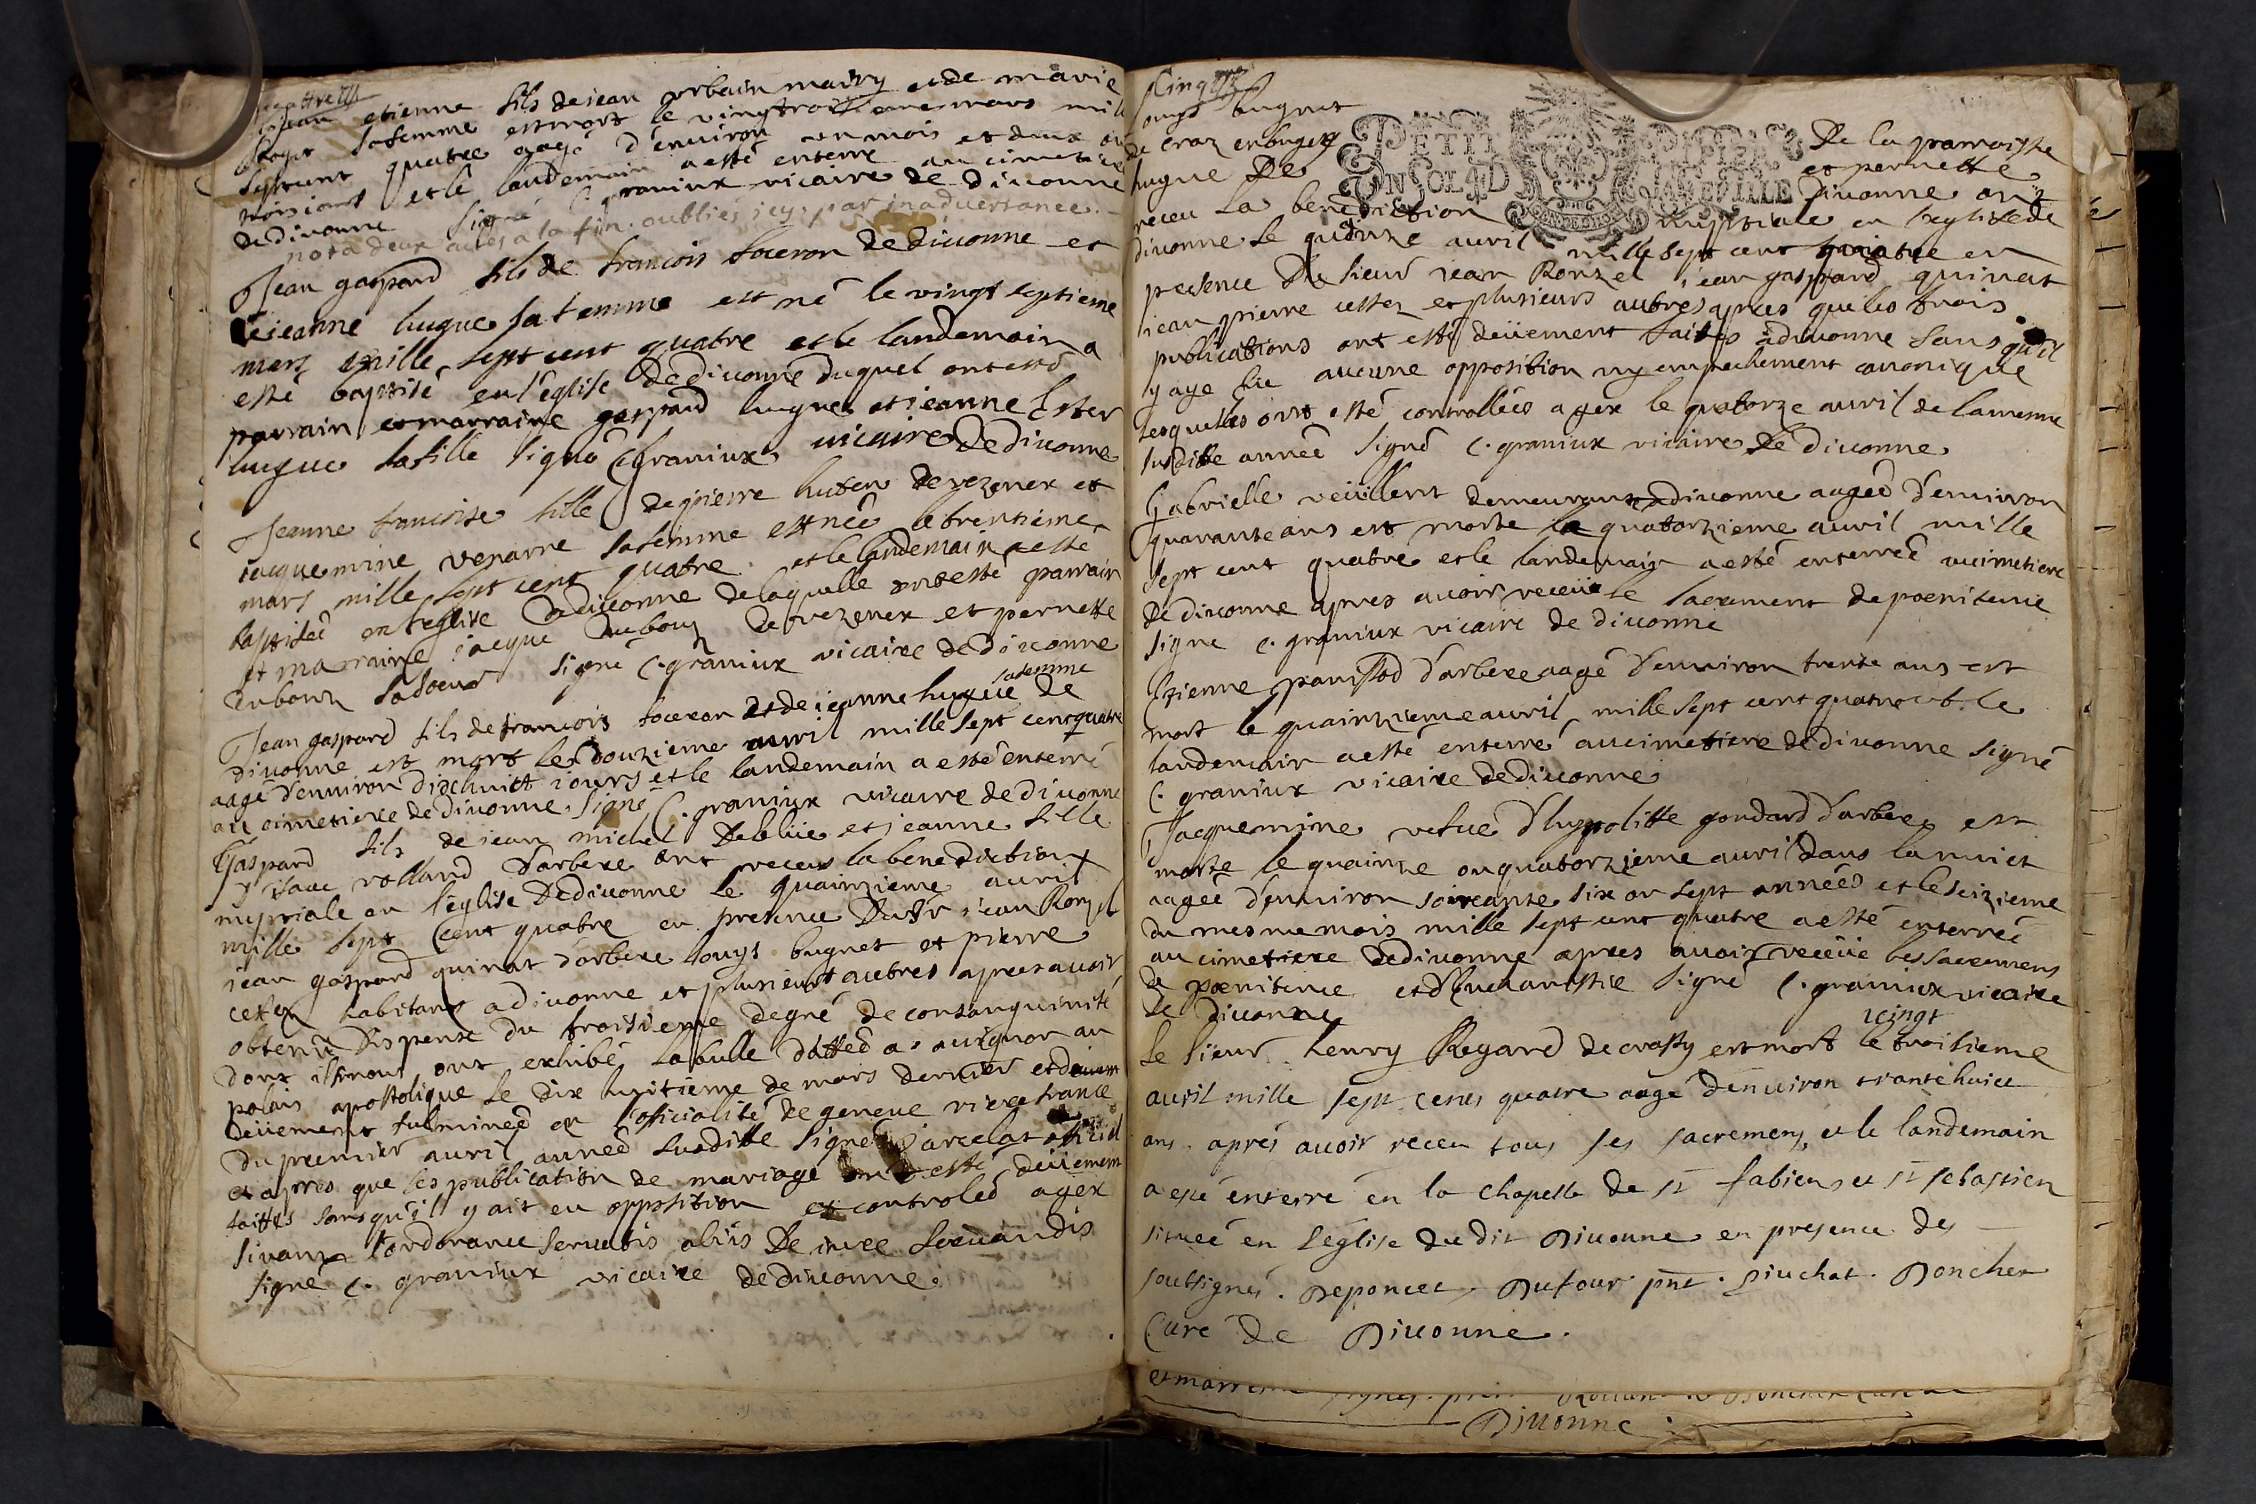 Jean etienne fils de jean urbain mairy et de marie
Roget sa femme est mort le vingtroisieme mars mil
septcent quatre aagé d'environ un mois et deux ou
trois jours et le landemain a esté enterré au cimetiere
de divonne signé C. graniux vicaire de divonne
nota deux actes a la fin oubliés icy par inadvertance.
Jean gaspard fils de francois toceron de divonne et
jeanne hugue sa femme est né le vingt septieme
mars mille sept cent quatre et le landemain a
esté baptisé en l'église de divonne duquel ont esté
parrain et marraine gaspard hugues et jeanne Ester
hugue sa fille signé C. graniux vicaire de divonne
Jeanne francoise fille de pierre huten de vezenex et
jacquemine venarre sa femme est née le trentieme
mars mille sept cent quatre et le landemain a esté
baptisée en l'eglise a divonne de laquelle ont esté parrain
et marraine jacque dubouz de vezenex et pernette
dubouz sa soeur signé C. graniux vicaire de divonne
sa femme
Jean gaspard fils de francois toceron et de jeanne hugue de
divonne est mort le douzieme avril mille sept cent quatre
aagé d'environ dixhuict jours et le landemain a esté enterré
au cimetiere de divonne. signé C. graniux vicaire de divonne
Gaspard fils de jean michel Deblüe et jeanne fille
d'isaac rolland d'arbere ont receus la benediction
nuptiale en l'église de divonne le quainzieme avril
mille sept cent quatre en presence du Sr jean Ronzel
jean gaspard quinat d'arbere louys bugnet et pierre
cetex habitans a divonne et plusieurs autres apres avoir
obtenu dispense du troisieme degré de consanguinité
dont ils nous ont exhibé la bulle dattée a avignon au
palais apostolique le dix huitieme de mars dernier et
deüement fulminée en l'officialité de geneve riere france
du premier avril année susditte signé d'arcelat official
et apres que les publication de mariage ont esté deüement
faittes sans qu'il y ait eu opposition et controlée a gex
sivant l'ordonance servatis aliis de jure servandis
signé C. graniux vicaire de divonne.
Cinq
louys bugnet De la parroisse
de craz en bugey et pernette
hugue De Divonne ont
PETIT PAPIER
UN SOL 4 D LA FEUILLE
receu la benediction nuptiale en l'eglise de
divonne le quinze avril mille sept cent quatre en
presence du sieur jean Ronzel jean gaspard quinat
jean pierre cettez et plusieurs autres apres que les trois
publications ont esté deüement faites a divonne sans qu'il
y aye eu aucune opposition ny empechement canonique
lesquelles ont esté controllées a gex le quatorze avril de la mesme
susditte année signé C. graniux vicaire de divonne
Gabrielle veüillent demeurant a divonne aagée d'environ
quarante ans est morte le quatorzieme avril mille
sept cent quatre et le landemain a esté enterrée au cimetiere
de divonne apres avoir receüe le sacrement de poenitence
signe C. graniux vicaire de divonne
Etienne panissod d'arbere aagé d'environ trente ans est
mort le quainzieme avril mille sept cent quatre et le
landemain a esté enterré au cimetiere de divonne signé
C. graniux vicaire de divonne
Jacquemine vefue d'hyppolitte gondard d'arbere est
morte le quainze ou quatorzieme avril dans la nuict
aagée d'environ soixante six ou sept années et le seizieme
du mesme mois mille sept cent quatre a esté enterrée
au cimetiere de divonne apres avoir receüe les sacremens
de poenitence et d'Eucharistie signé C. graniux vicaire
de divonne
vingt
Le sieur henry Regard de crassy est mort le troisieme
avril mille sept cents quatre aagé d'environ trante huict
ans. aprés avoir receu tous ses sacremens, et le landemain
a esté enterré en la chapelle de st fabien et st sebastien
située en L'église du dit Divonne en presence des
soubsignés. Deponcet. Dufour pnt. Piuchat. Doncher
Curé de Divonne.
et marreine signés
Divonne.